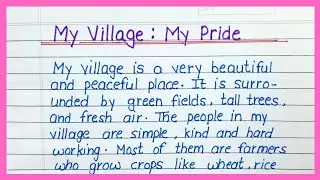 My Village : My Pride
My village is a very beautiful
and peaceful place. It is surro-
unded by green fields, tall trees,
and fresh air. The people in my
village are simple, kind and hard
working. Most of them are farmers
who grow crops like wheat, rice